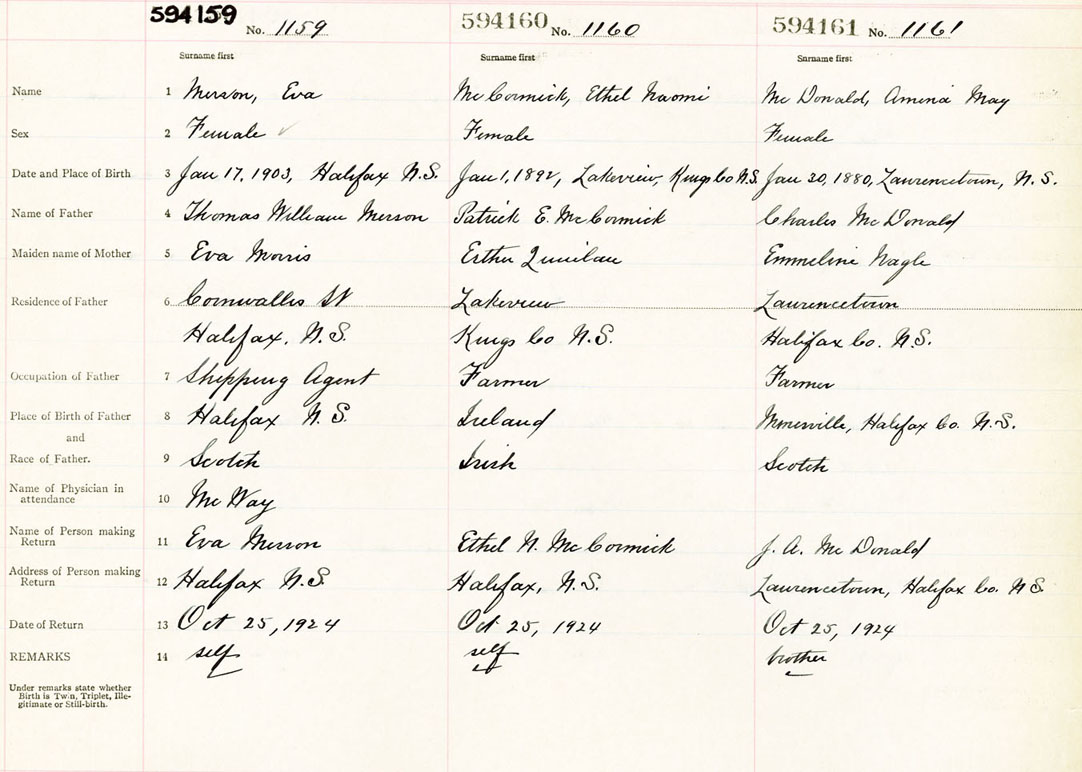 594159 No. 1159 594160 No. 1160 594161 No. 1161
Surname first Surname first Surname first
Name 1 Merson, Eva McCormick, Ethel Naomi McDonald, Amenia May
Sex 2 Female Female Female
Date and Place of Birth 3 Jan 17, 1903, Halifax N.S. Jan 1, 1892, Lakeview, Kings Co N.S. Jan 30, 1880, Laurencetown, N.S.
Name of Father 4 Thomas William Merson Patrick E. McCormick Charles McDonald
Maiden name of Mother 5 Eva Morris Esther Quinlan Emmeline Nagle
Residence of Father 6 Cornwallis St Lakeview Laurencetown
Halifax, N.S. Kings Co N.S. Halifax Co. N.S.
Occupation of Father 7 Shipping Agent Farmer Farmer
Place of Birth of Father 8 Halifax N.S. Ireland Halifax Co. N.S.
and
Race of Father. 9 Scotch Irish Scotch
Name of Physician in
attendance 10 McKay
Name of Person making
Return 11 Eva Merson Ethel N. McCormick J. A. McDonald
Address of Person making
Return 12 Halifax N.S. Halifax, N.S. Laurencetown, Halifax Co. N S.
Date of Return 13 Oct 25, 1924 Oct 25, 1924 Oct 25, 1924
REMARKS 14 self self brother
Under remarks state whether
Birth is Twin, Triplet, Ille-
gitimate or Still-birth.